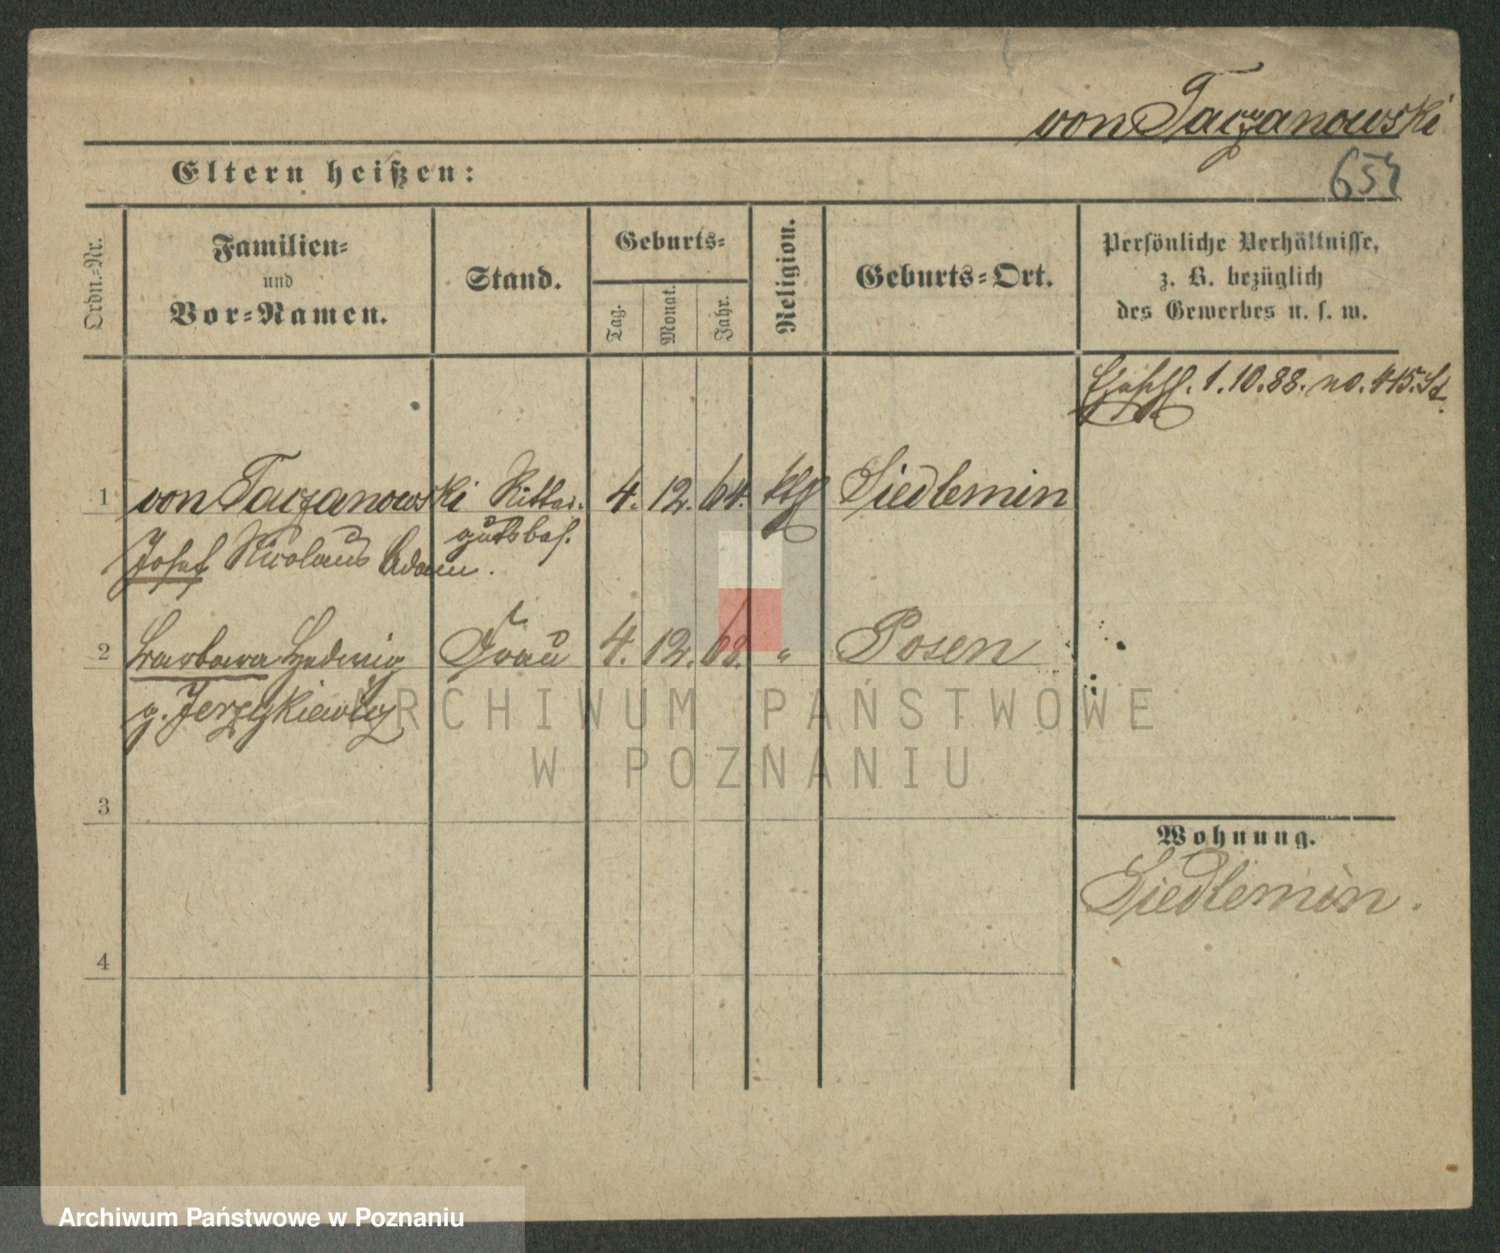 von Taczanowski
Eltern heißen:
Ordn.-Nr.
Familien-
und
Vor-Namen.
Stand.
Geburts-
Tag.
Monat.
Jahr.
Religion.
Geburts-Ort.
Persönliche Verhältnisse,
z. B. bezüglich
des Gewerbes u. s. w.
1.10.88. no. 415. St.
1 von Taczanowski Ritter- 4. 12. 64. kth Siedlemin
gutsbes.
Josef Nicolaus Adam.
2 Barbara Hedwig Frau 4. 12. 68. " Posen
g. Jerzykiewicz
3
Wohnung.
Siedlemin.
4
ARCHIWUM PAŃSTWOWE
W POZNANIU
Archiwum Państwowe w Poznaniu